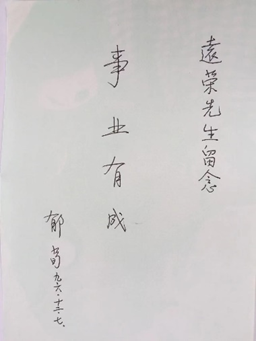 遠荣先生留念
事业有成
郁苟九六·十二·七、